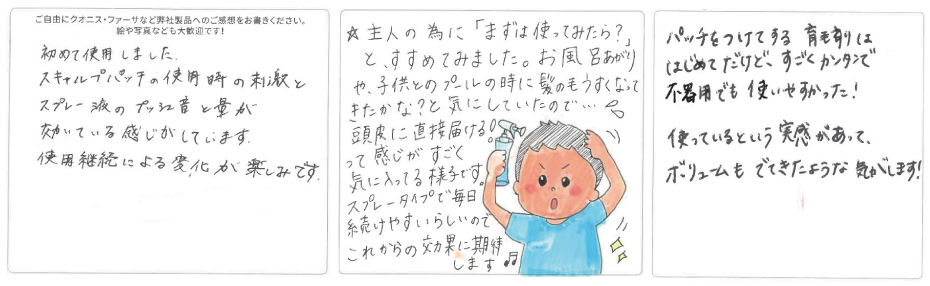 ご自由にクオニス・ファーサなど弊社製品へのご感想をお書きください。
絵や写真なども大歓迎です！
初めて使用しました。
スキャルプパッチの使用時の刺激と
スプレー液のプッシュ音と量が
効いている感じがしています。
使用継続による変化が楽しみです。
☆主人の為に「まずは使ってみたら？」
と、すすめてみました。お風呂あがり
や、子供とのプールの時に髪のもうすくなって
きたかな？と気にしていたので…
頭皮に直接届ける！
って感じがすごく
気に入ってる様子です。
スプレータイプで毎日
続けやすいらしいので
これからの効果に期待
します♫
パッチをつけてする育毛剤は
はじめてだけど、すごくカンタンで
不器用でも使いやすかった！
使っているという実感があって、
ボリュームもでてきたような気がします！